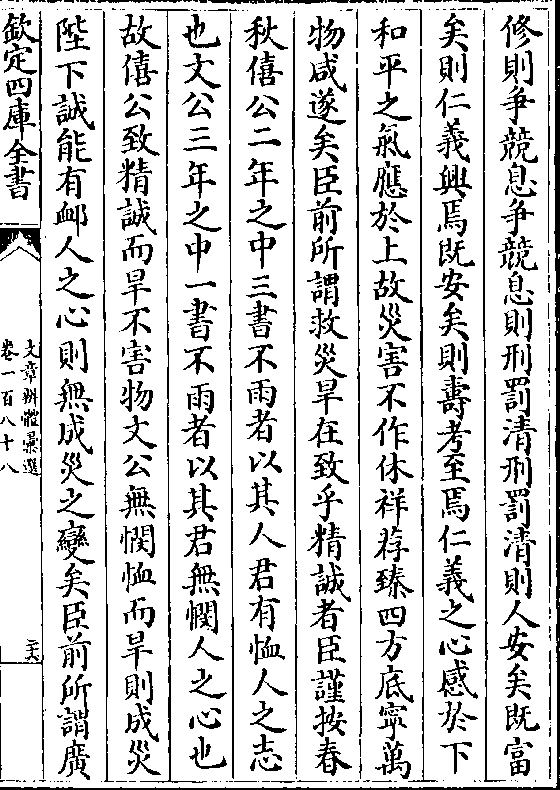 修則争競息争競息則刑罰清刑罰清則人安矣既富
矣則仁義興焉既安矣則壽考至焉仁義之心感於下
和平之氣應於上故災害不作休祥荐臻四方底寧萬
物咸遂矣臣前所謂救災旱在致乎精誠者臣謹按春
秋僖公二年之中三書不雨者以其人君有恤人之志
也文公三年之中一書不雨者以其君無憫人之心也
故僖公致精誠而旱不害物文公無憫恤而旱則成災
陛下誠能有䘏人之心則無成災之變矣臣前所謂廣
欽定四庫全書
文章辨體彚選
卷一百八十八
二六